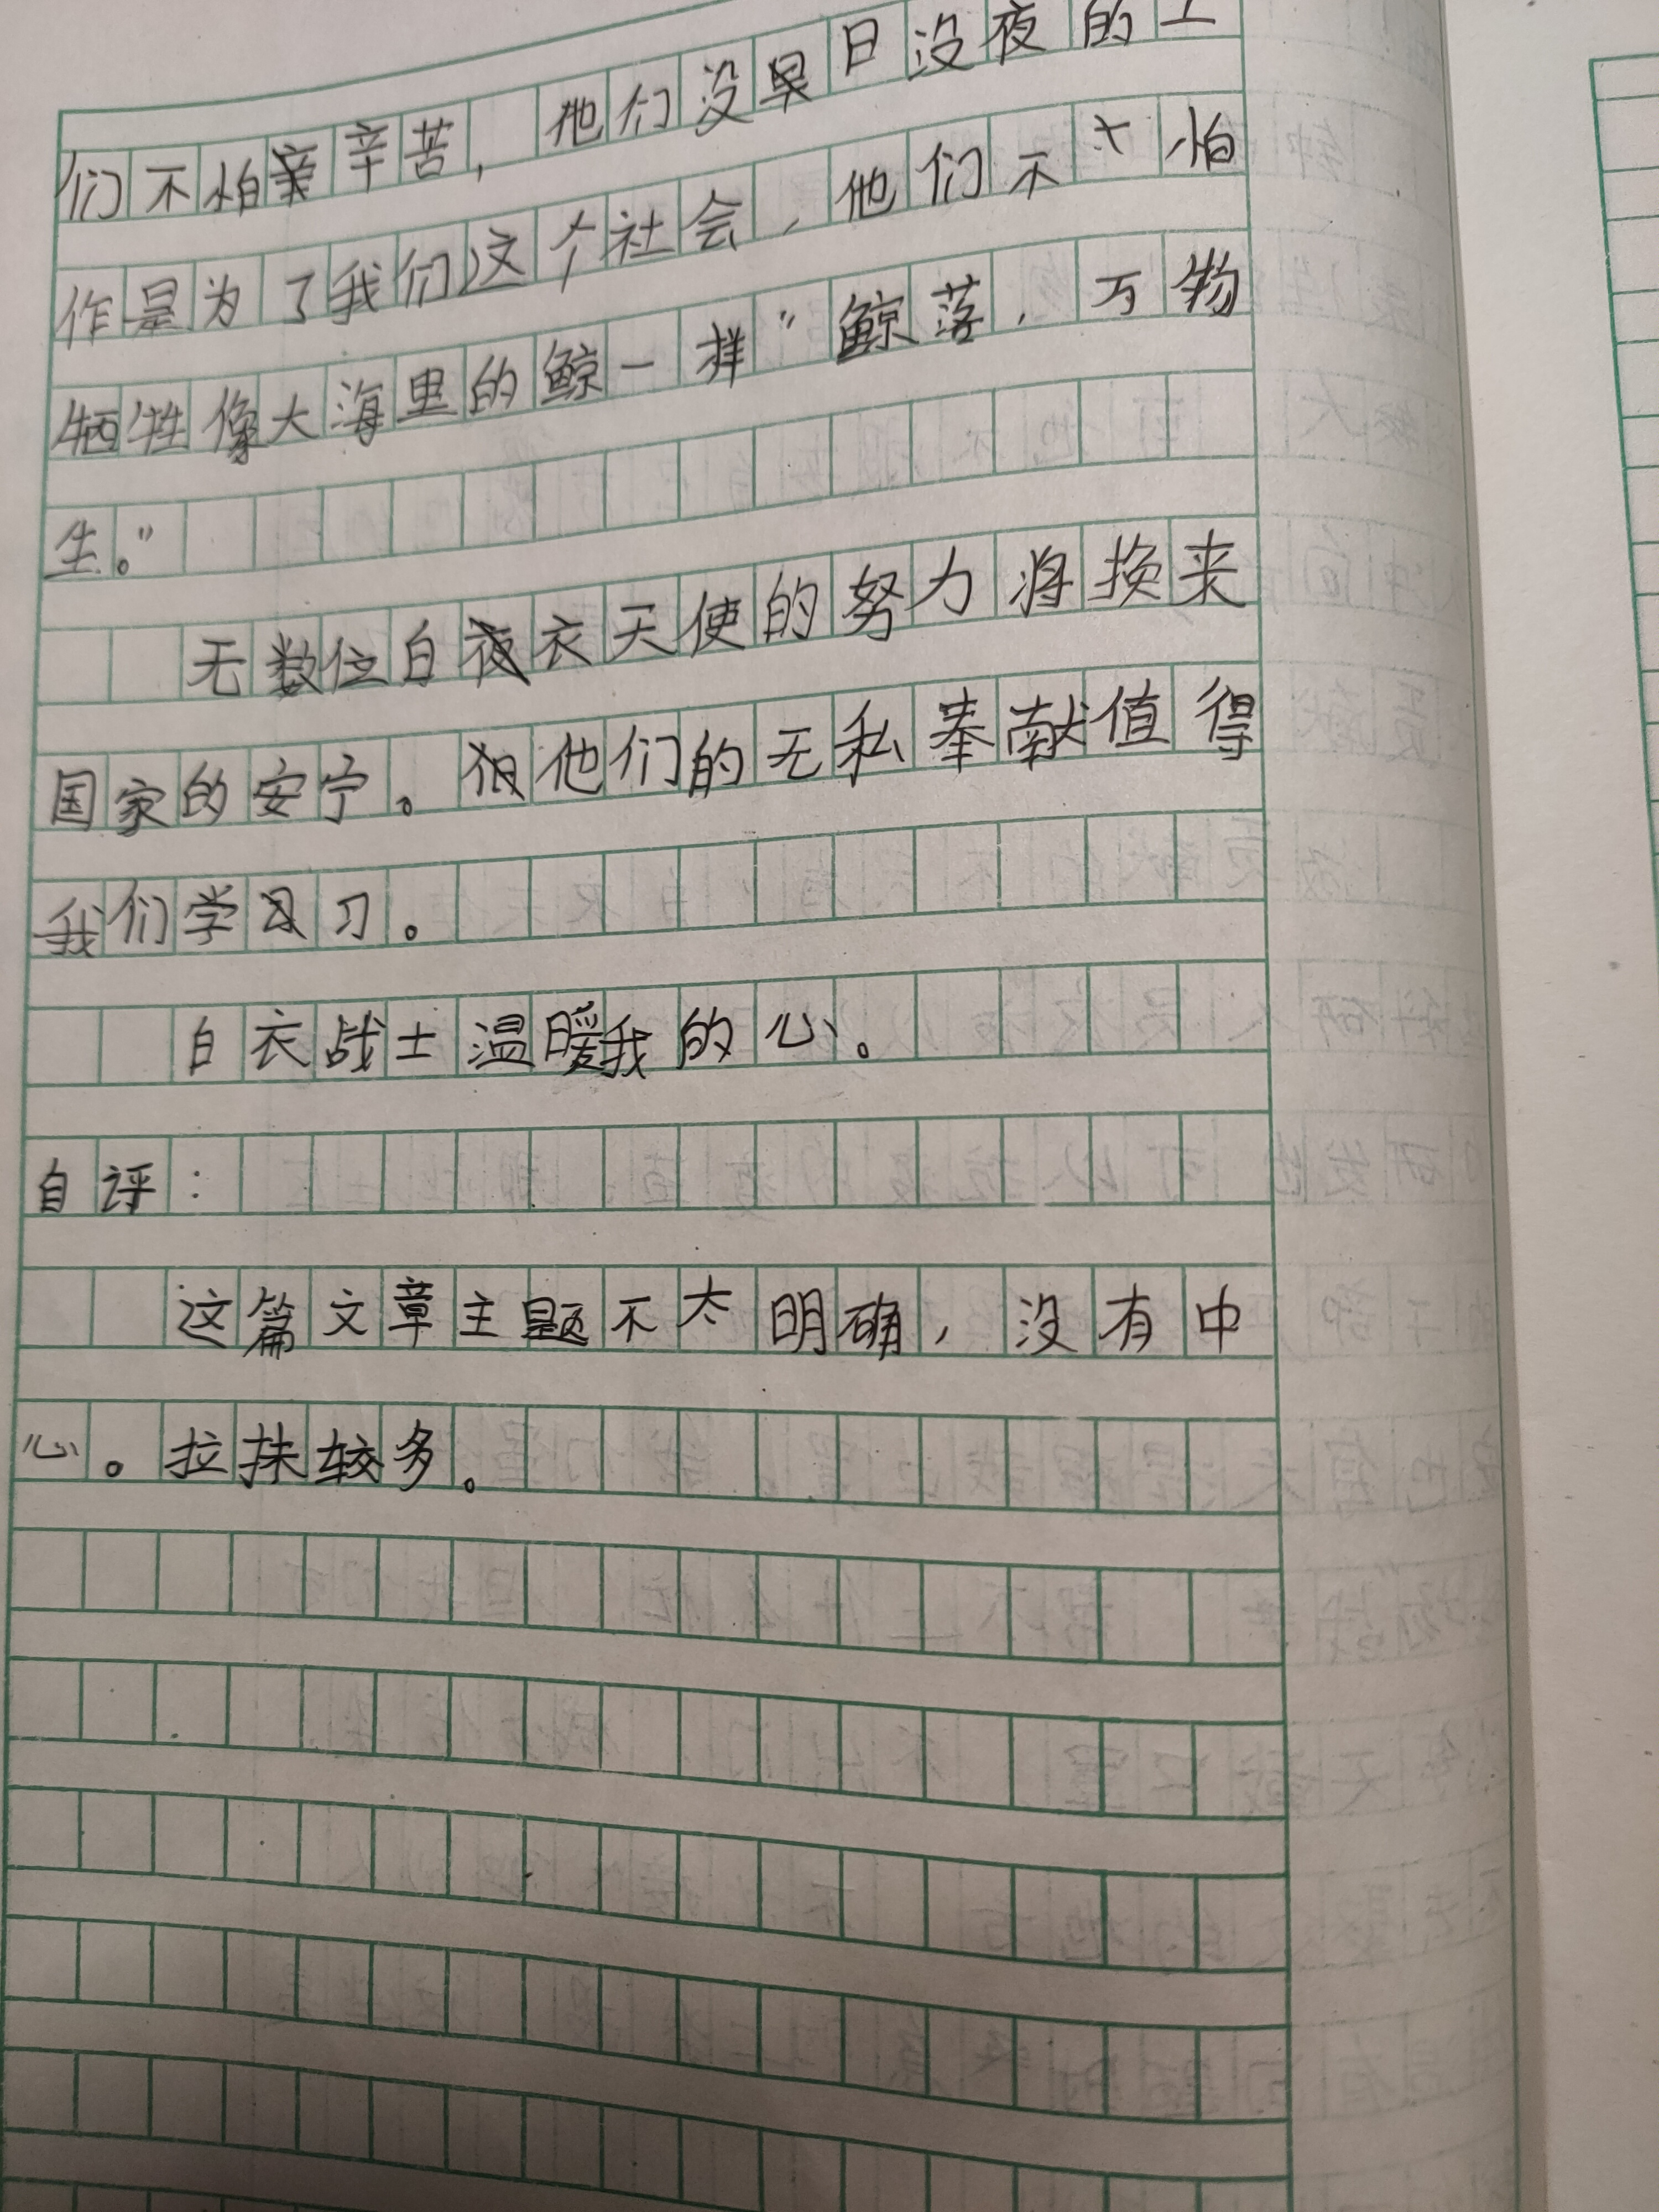 们不怕辛苦，他们没日没夜的工
作是为了我们这个社会，他们不怕
牺牲像大海里的鲸一样“鲸落，万物
生。”
无数位白衣天使的努力将换来
国家的安宁。他们的无私奉献值得
我们学习。
白衣战士温暖我的心。
自评：
这篇文章主题不太明确，没有中
心。拉抹较多。